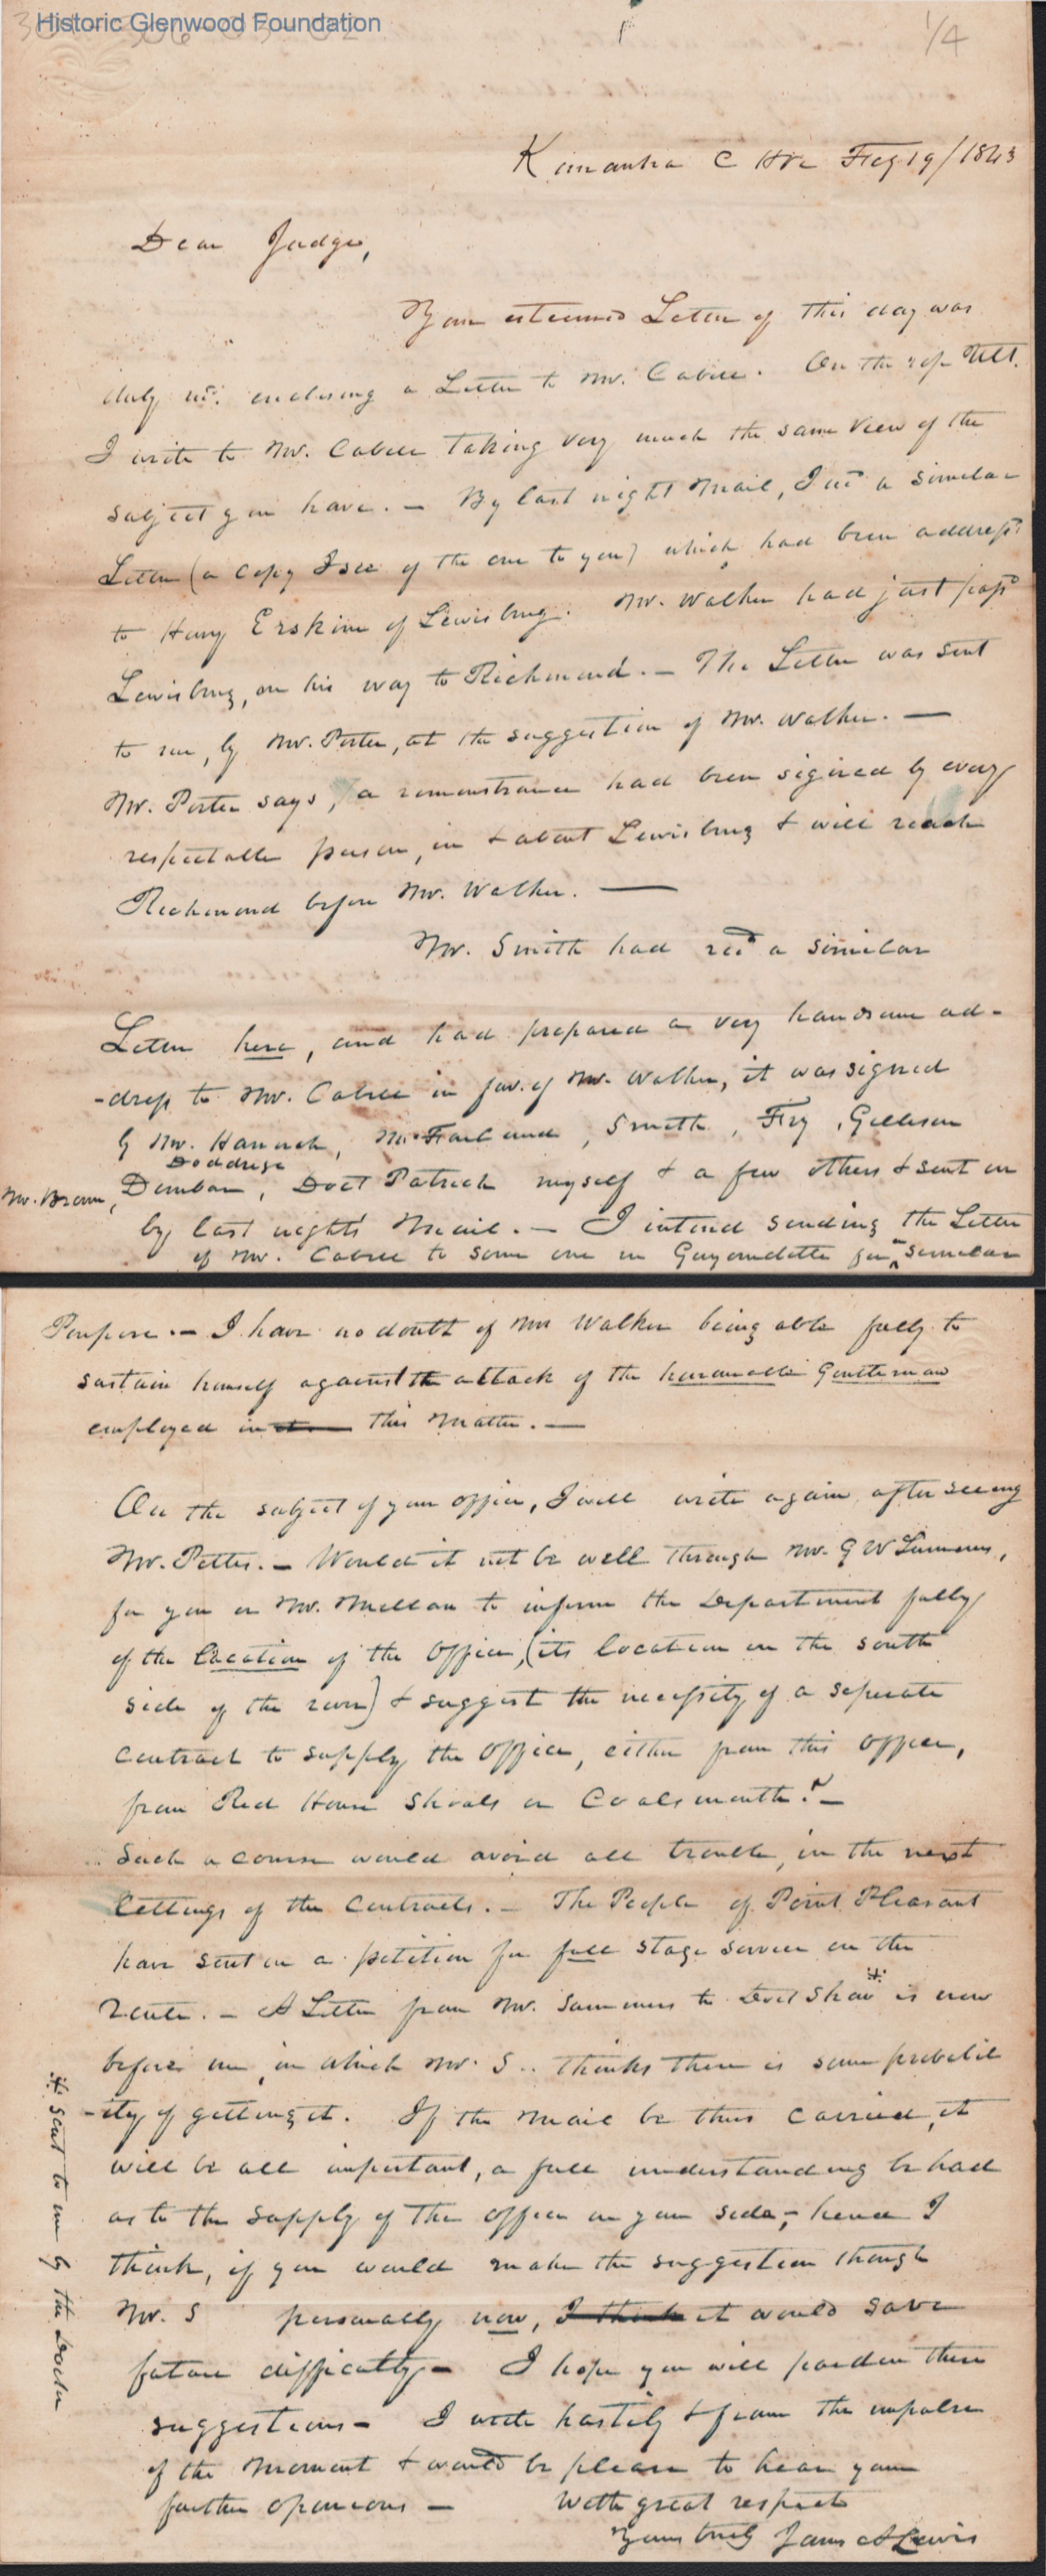 Historic Glenwood Foundation
1/4
Kanawha C Hse Feby 19/1843
Dear Judge,
Your esteemed Letter of this day was
duly recd. enclosing a Letter to Mr. Cabell. On the Ult.
I wrote to Mr. Cabell taking very much the same view of the
subject you have. — By last night Mail, I recd a similar
Letter (a copy I see of the one to you) which had been addressd
to Henry Erskine of Lewisburg. Mr. Walker had just passd
Lewisburg, on his way to Richmond. — The Letter was sent
to me, by Mr. Porter, at the suggestion of Mr. Walker. —
Mr. Porter says, a remonstrance had been signed by every
respectable person, in & about Lewisburg & will reach
Richmond before Mr. Walker. —
Mr. Smith had recd a similar
Letter here, and had prepared a very handsome ad-
-dress to Mr. Cabell in fav. of Mr. Walker, it was signed
by Mr. Hannah, McFarland, Smith, Fry, Gillison
Doddridge
Mr. Brown, Dunbar, Doct Patrick myself & a few others & sent on
by last nights Mail. — I intend sending the Letter
of Mr. Cabell to some one in Guyandotte for similar
Purpose. — I have no doubt of Mr Walker being able fully to
sustain himself against the attack of the honorable Gentleman
employed in this Matter. —
On the subject of your office, I will write again after seeing
Mr. Pettes. — Would it not be well through Mr. G W Summers,
for you or Mr. McLean to inform the Department fully
of the Location of the Office, (its location on the south
side of the river) & suggest the necessity of a seperate
contract to supply the Office, either from this Office,
from Red House Shoals or Coalsmouth? —
Such a course would avoid all trouble, in the next
Lettings of the Contracts. — The People of Point Pleasant
have sent on a petition for full stage service on the
Route. — A Letter from Mr. Summers to Doct Shaw ⁜ is now
before me, in which Mr. S.. thinks there is some probabil
-ity of getting it. If the Mail be thus carried, it
will be all important, a full understanding be had
as to the supply of the office on your side, — hence I
think, if you would make the suggestion though
Mr. S personally now, I think it would save
future difficulty — I hope you will pardon these
suggestions — I write hastily & from the impulse
of the Moment & would be please to hear your
further opinions — With great respect
Yours truly James A Lewis
⁜ sent to me by the Doctor